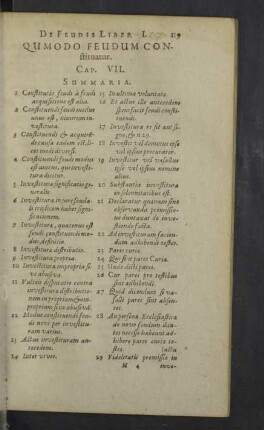 DE FEUDIS LIBER I. 119
QUMODO FEUDUM CON-
stituatur.
CAP. VII.
SUMMARIA.
1 Constitutio feudi à feudi
acquisitione est alia.
2 Constituendi feudi modus
unus est, videlicet in-
vestitura.
3 Constituendi & acquirendi
eadem est
modi diversi.
4 Constituendi feudi modus
est unicus, qui investi-
tura dicitur.
5 Investitura significatio ge-
neralis.
6 Investitura in jure feuda-
li duplicem habet signi-
ficationem.
7 Investitura, quatenus est
feudi constituendi mo-
dus, definitio.
8 Investitura duplex.
9 Investitura propria.
10 Investitura impropria si-
ve abusiva.
11 Vulteii disputatio contra
investiturae distributio-
nem in propriam & im-
propriam sive abusivam.
12 Modus constituendi feu-
di novi per investitu-
ram varius.
13 Actus investituram an-
tecedens.
14 Inter vivos.
15 In ultima voluntate.
16 Et actus ille antecedens
ipsum feudi constituendi
modus.
17 Investitura re fit aut si-
gno, & n. 29.
18 Investit vel dominus ipse
vel ipsius procurator.
19 Investitur vel vasallus
ipse vel ipsius nomine
alius.
20 Substantia investiturae
in solennitatibus est.
21 Declaratur quaenam sint
observandae praemissio-
ne duntaxat de inve-
stiendi facto.
22 Ad investituram facien-
dam adhibendi testes.
23 Pares curiae.
24 Qui sint pares Curiae.
25 Unde dicti pares.
26 Cur pares pro testibus
sint adhibendi.
27 Quid dicendum si va-
salli pares sint absen-
tes.
28 An persona Ecclesiastica
de novo feudum dans
tunc necesse habeat ad-
hibere pares curiae te-
stes.
29 Fidelitatis praemissio in
M 4 inve-